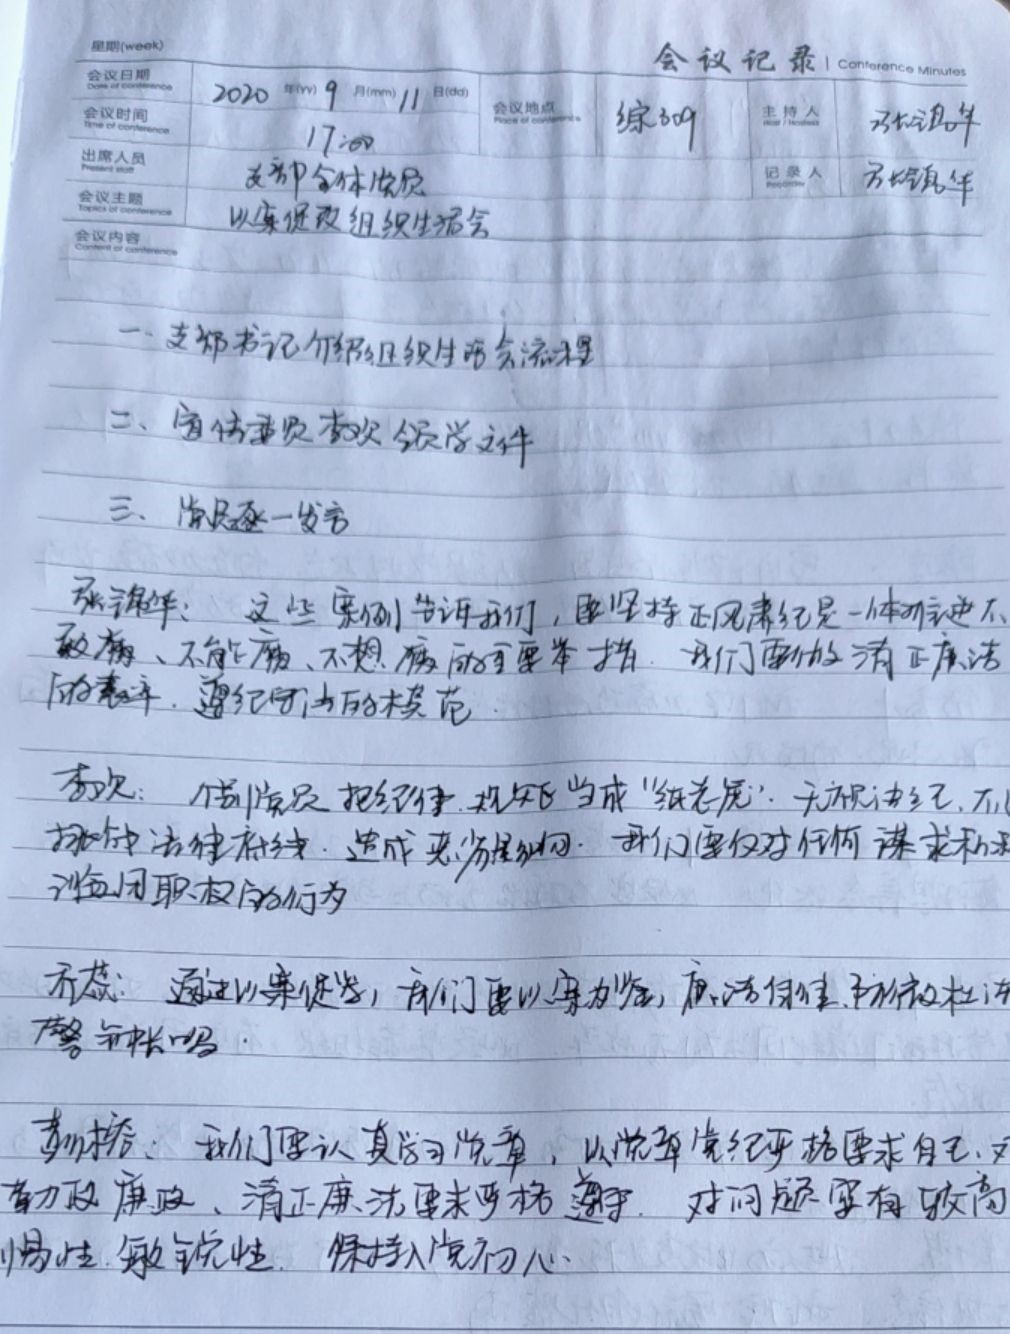 星期(week)
会议记录 | Conference Minutes
会议日期 Date of conference 2020 年(yy) 9 月(mm) 11 日(dd) 会议地点 Place of conference 综309 主持人 Host / Hostess
会议时间 Time of conference 17:00
出席人员 Present staff 支部全体党员 记录人 Recorder
会议主题 Topics of conference 以案促改组织生活会
会议内容 Content of conference
一、支部书记介绍组织生活会流程
二、宣传委员李欢领学文件
三、党员逐一发言
这些案例告诉我们,要坚持正风肃纪是一体推进不
敢腐、不能腐、不想腐的重要举措. 我们要做清正廉洁
的表率. 遵纪守法的模范.
李欢: 个别党员把纪律规矩当成"纸老虎". 无视法纪.
挑战法律底线. 造成恶劣影响. 我们要反对任何谋求私利
滥用职权的行为
齐蕊: 通过以案促学,我们要以案为鉴,廉洁自律.
警钟长鸣.
我们要认真学习党章,以党章党纪严格要求自己.
勤政廉政、清正廉洁要求严格遵守. 对问题要有较高
惕性. 敏锐性. 保持入党初心.